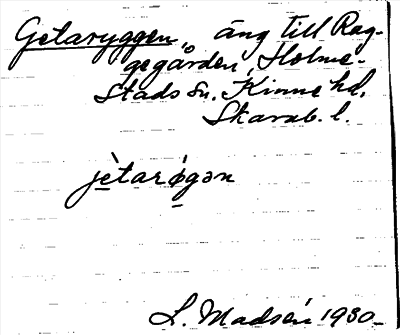 Getaryggen, äng till Rag-
gegården, Holme-
stads sn. Kinne hd.
Skarab. l.
jètarøgən
L. Madsén 1930